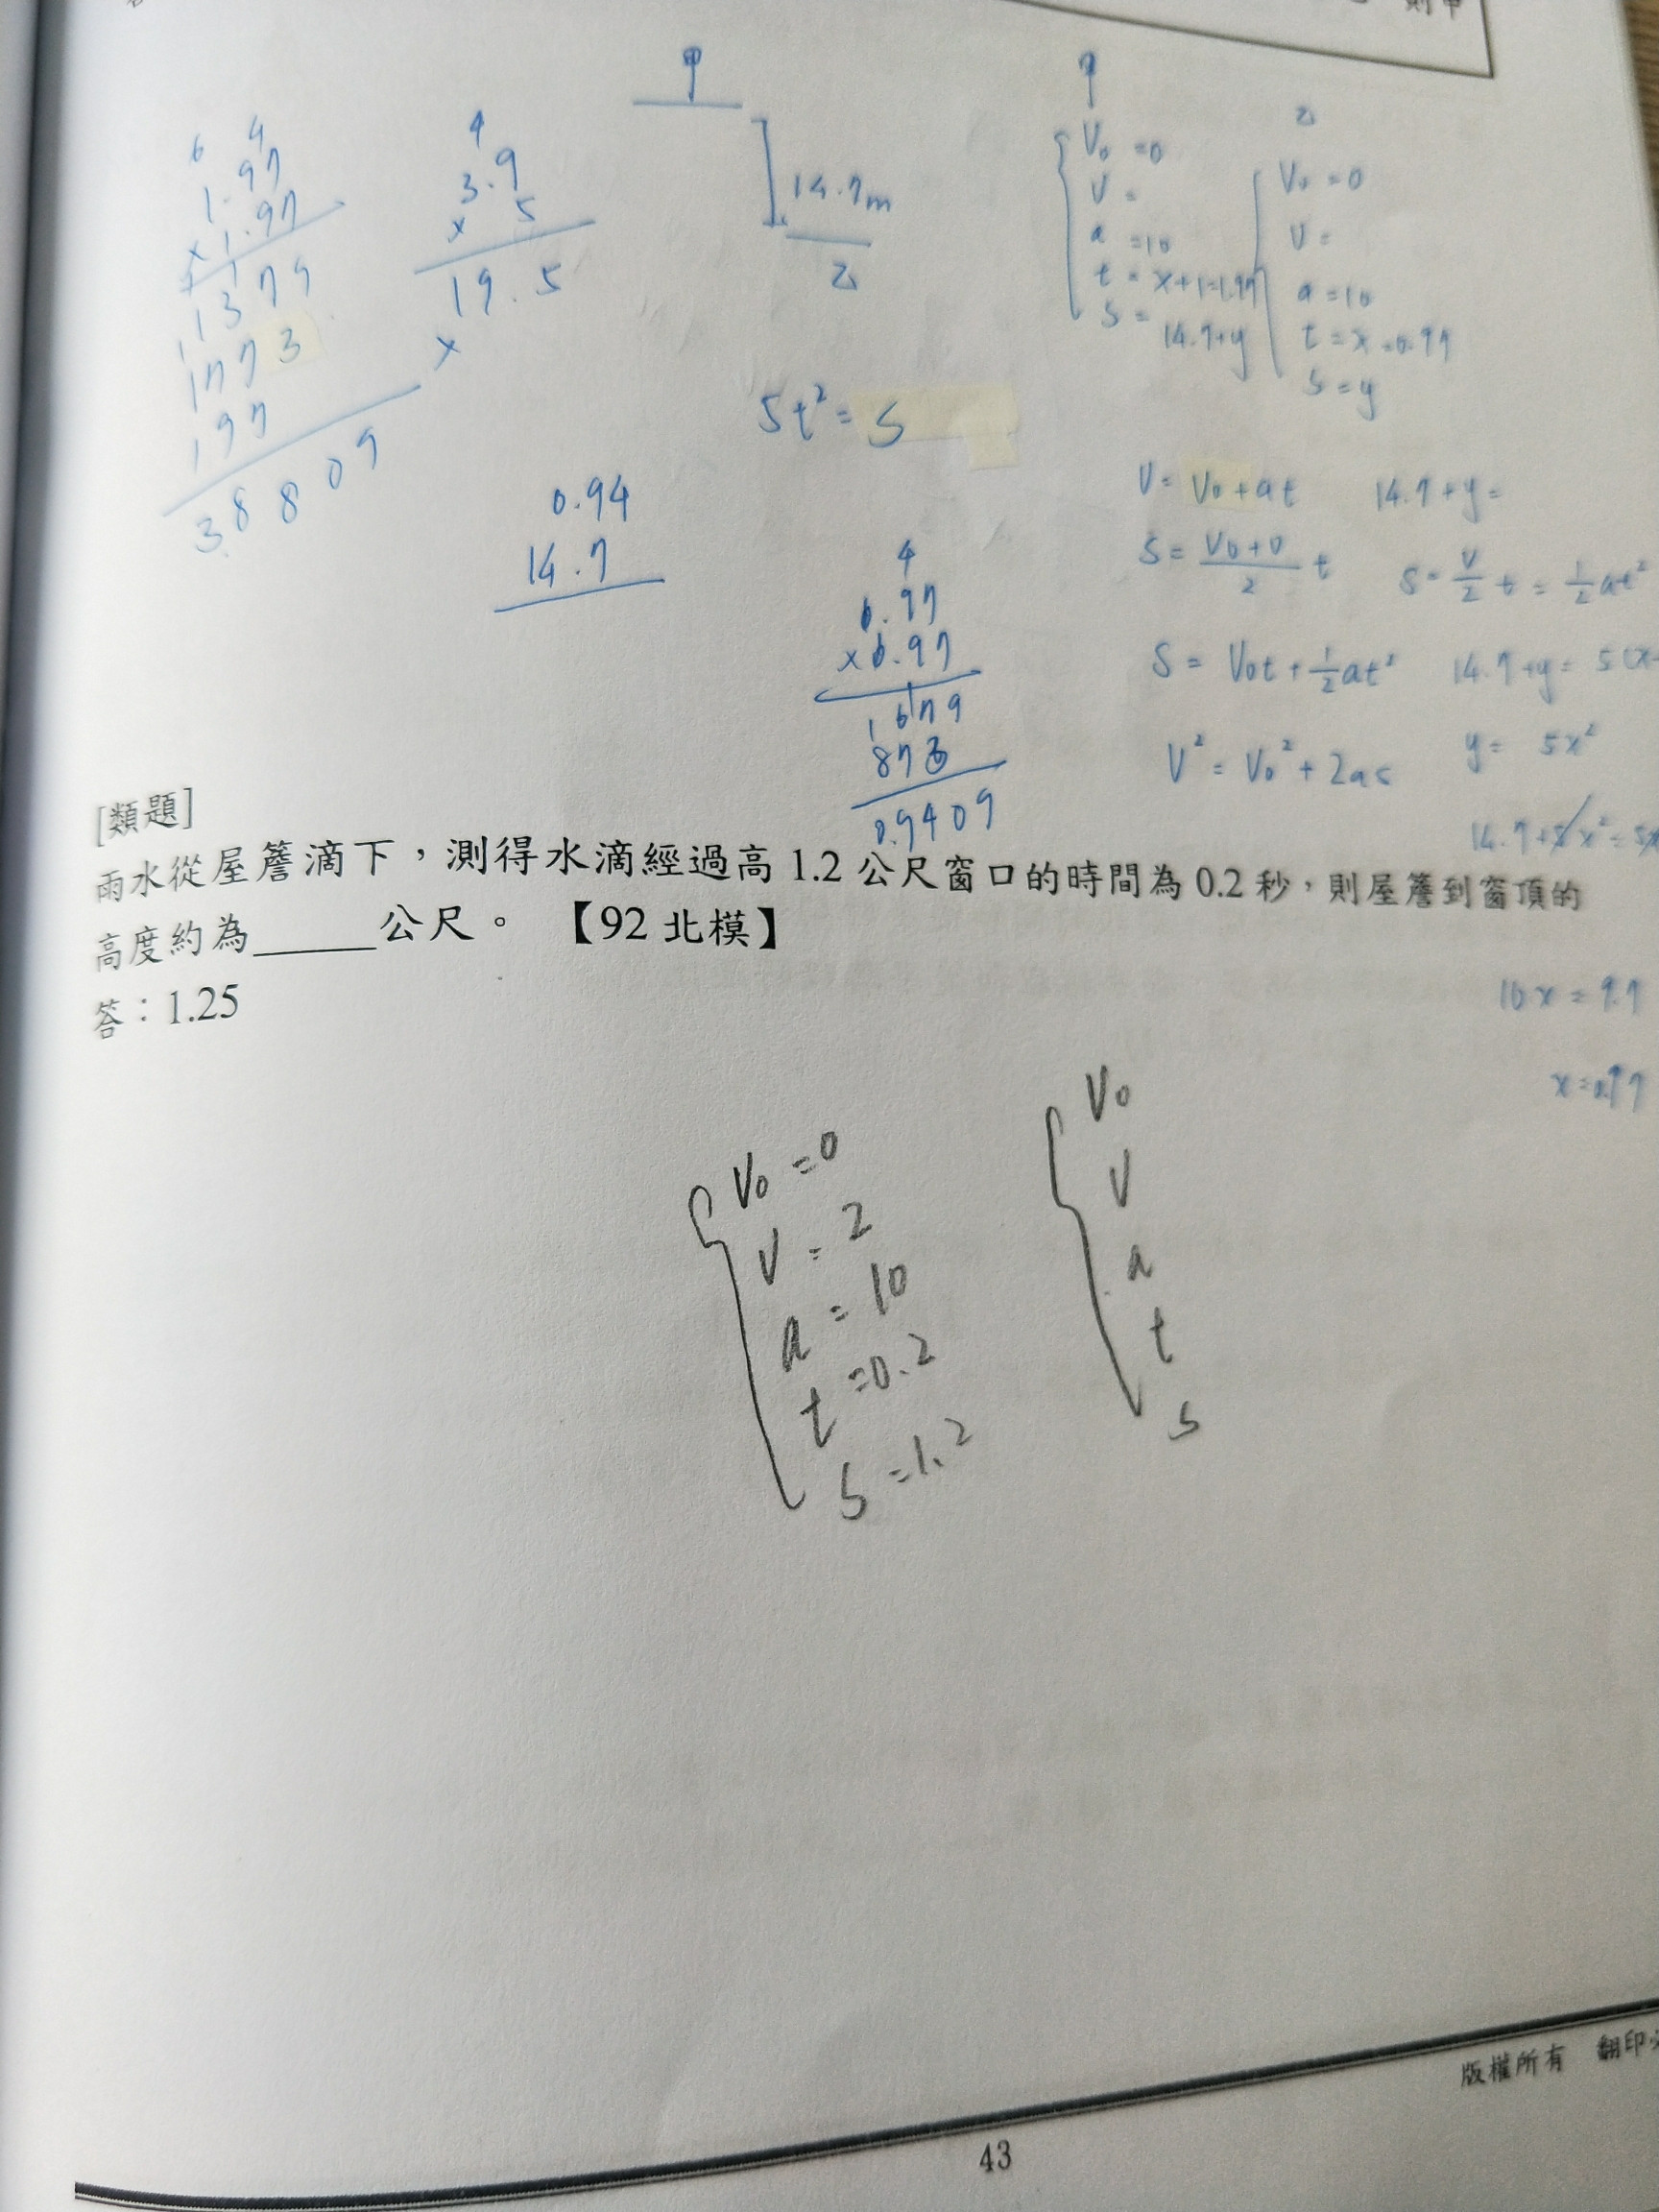 則甲
甲
14.7m
乙
甲
V₀ =0
V =
a =10
t = x+1=1.97
S =
14.7+y
乙
V₀ =0
V =
a =10
t = x =0.97
S = y
6 4
1.97
×1.97
1379
1773
197
3.8809
4
3.9
× 5
19.5
×
5t² = S
0.94
14.7
4
0.97
×0.97
1
679
873
0.9409
V = V₀+at
S = (V₀+0)/2 t
S = V₀t+½at²
V² = V₀²+2as
14.7+y =
S = V/2 t = ½at²
14.7+y = 5(x
y = 5x²
14.7+5x² = 5x
10x = 9.7
x=0.97
[類題]
雨水從屋簷滴下,測得水滴經過高 1.2 公尺窗口的時間為 0.2 秒,則屋簷到窗頂的
高度約為______公尺。 【92 北模】
答:1.25
V₀ =0
V = 2
a = 10
t =0.2
S =1.2
V₀
V
a
t
S
版權所有 翻印
43